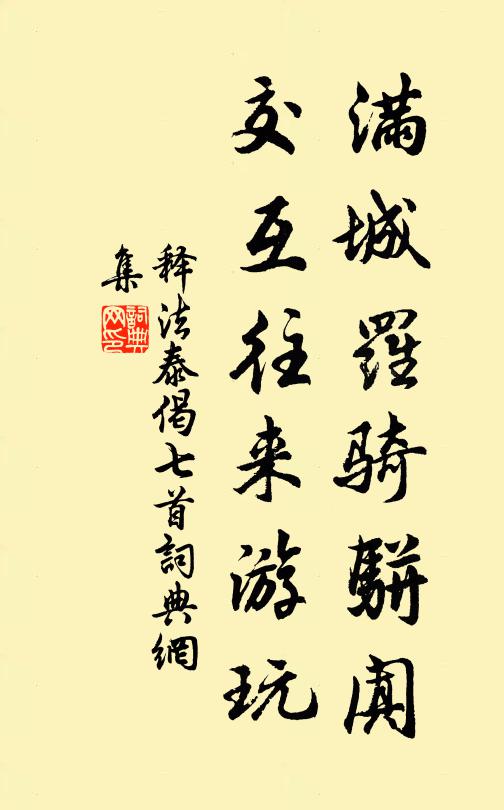 滿城羅騎駢闐
交互往来游玩
释法泰偈七首詞典網
集
詞典
网印